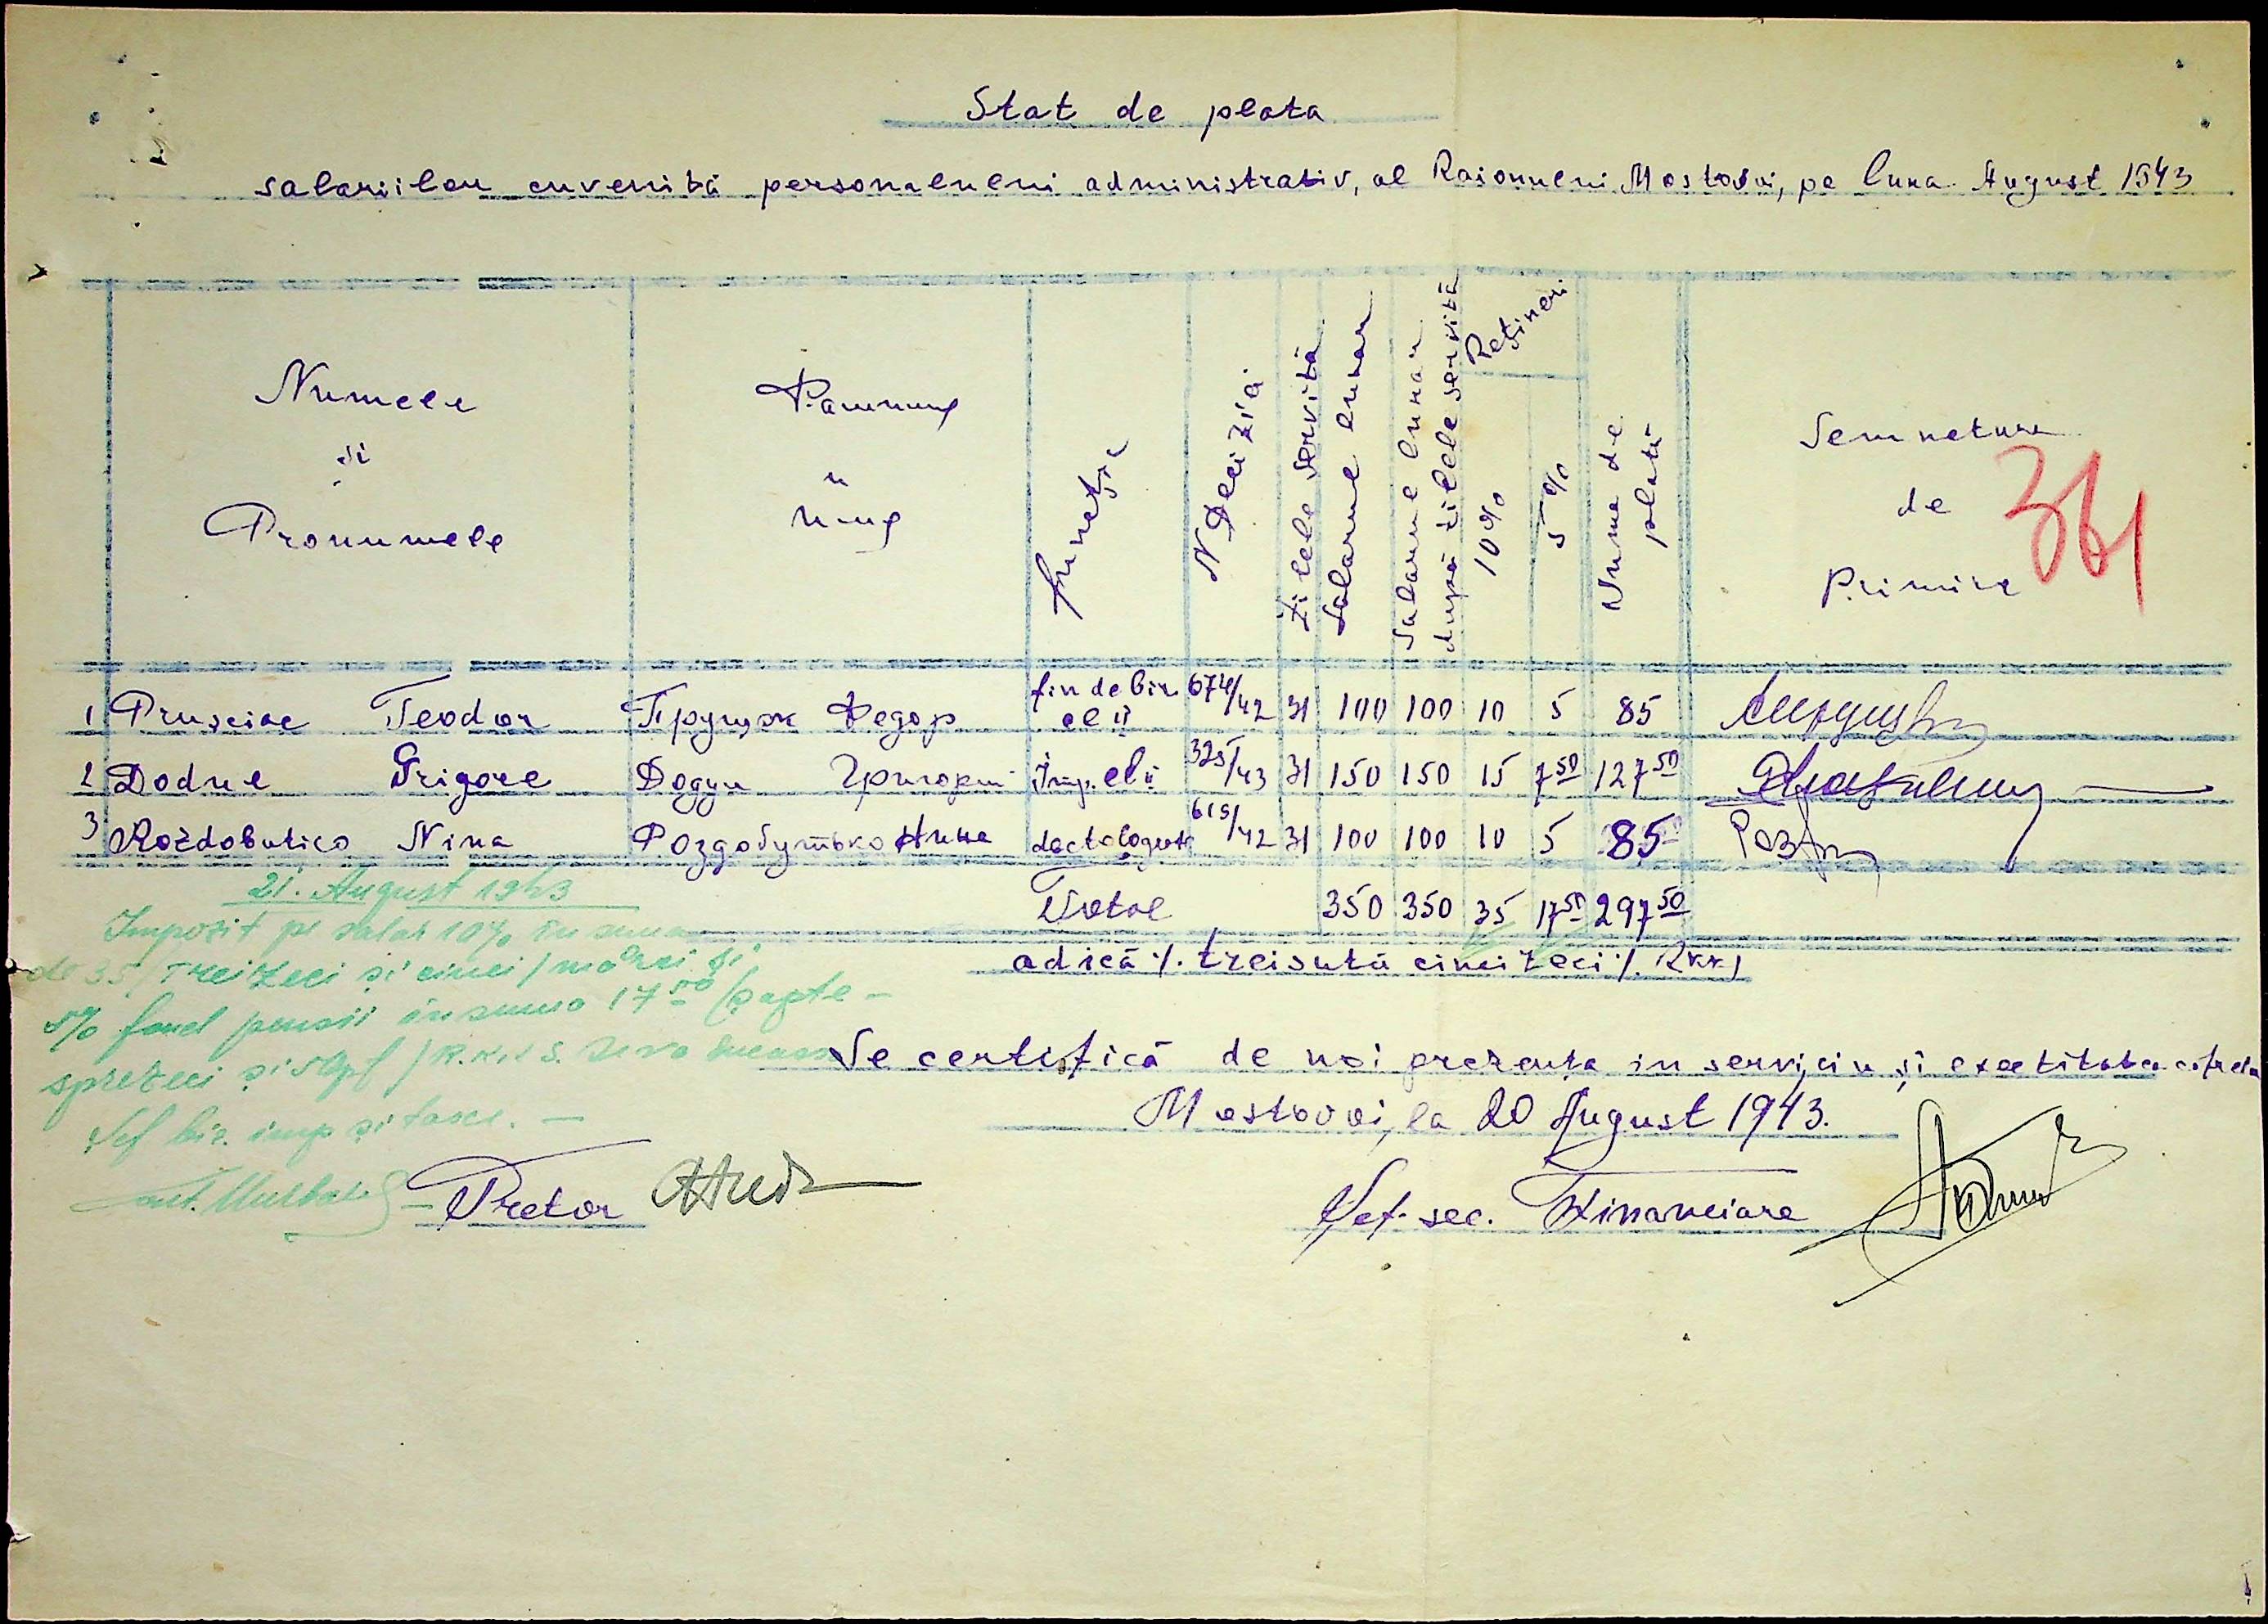 Stat de plata
salariilor cuvenită personalului administrativ, al Raionului Mostovoi, pe luna August 1943
Numele și Pronumele
Фамилия и имя
Funcția
N Decizia
Zilele servită
Salarul lunar
Salarul lunar după zilele servită
Rețineri
10%
5%
Suma de plată
Semnetura de Primire
361
1 Prusciac Teodor Прущак Федор fin de bir. cl II 674/42 31 100 100 10 5 85
2 Dodul Grigore Додул Григорий Imp. cl II 325/43 31 150 150 15 7 50 127 50
3 Rozdobutico Nina Роздобутько Нина dactolografă 619/42 31 100 100 10 5 85
Total 350 350 35 17 50 297 50
adică ./. treisută cincizeci ./. RKKS
21. August 1943
Impozit pe salar 10% în suma
de 35, Treizeci și cinci / mărci și
5% fond pensii în suma 17 50 (șapte-
sprezeci și 50 pf / R.K.K.S.
Șef bir. imp și taxe. —
Se certifică de noi prezența in serviciu și exactitatea cifrelor
Mostovoi, la 20 August 1943.
Pretor
Șef. sec. Financiare